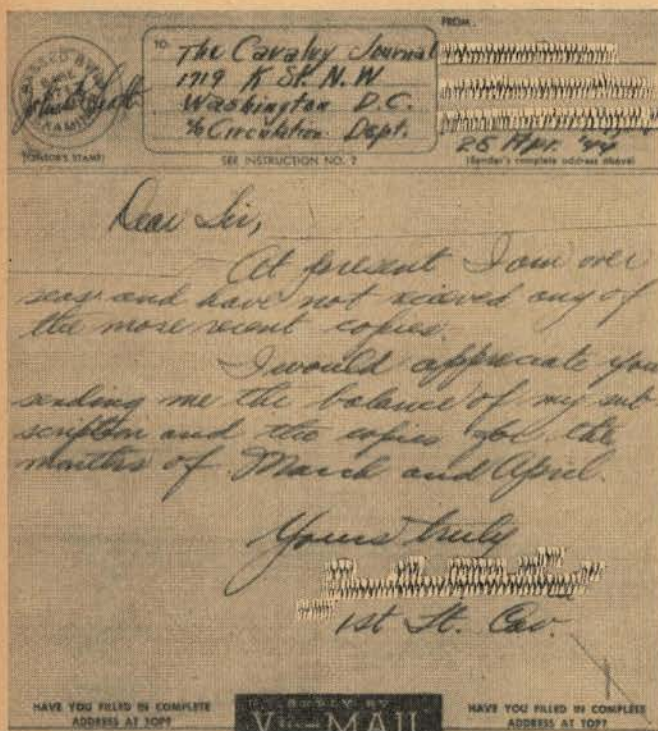 PASSED BY
EXAMINER
(CENSOR'S STAMP)
TO:
The Cavalry Journal
1719 K St. N.W
Washington D.C.
% Circulation Dept.
SEE INSTRUCTION NO. 2
FROM
25 Apr. '44
(Sender's complete address above)
Dear Sir,
At present I am over
seas and have not recieved any of
the more recent copies.
I would appreciate you
sending me the balance of my sub-
scription and the copies for the
months of March and April.
Yours truly
1st Lt. Cav.
HAVE YOU FILLED IN COMPLETE
ADDRESS AT TOP?
REPLY BY
V···—MAIL
HAVE YOU FILLED IN COMPLETE
ADDRESS AT TOP?